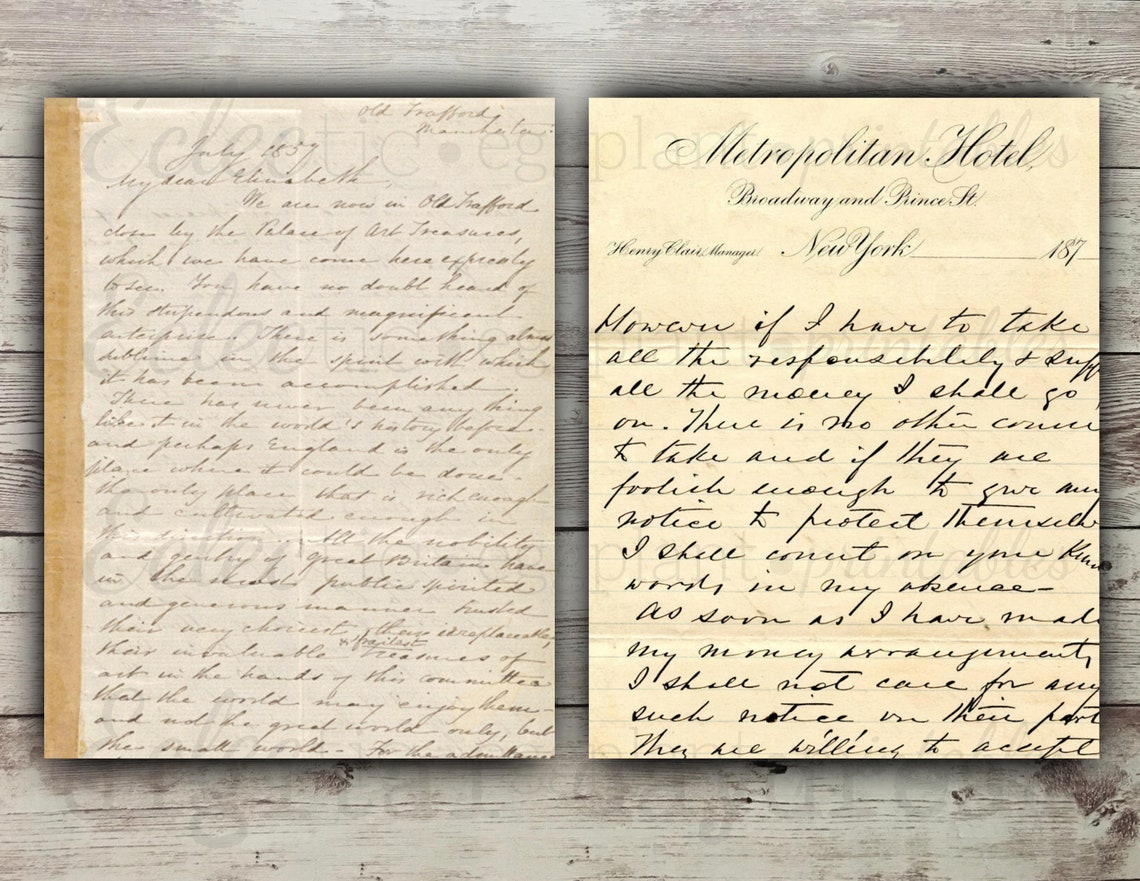 Old Trafford
Manchester
July 1857
My dear Elizabeth,
We are now in Old Trafford
close by the Palace of Art Treasures,
which we have come here expressly
to see. You have no doubt heard of
this stupendous and magnificent
enterprise. There is something almost
sublime in the spirit with which
it has been accomplished.
There has never been any thing
like it in the world's history before.
and perhaps England is the only
place where it could be done.
the only place that is rich enough
and cultivated enough in
this direction. All the nobility
and gentry of Great Britain have
in the most public spirited
and generous manner trusted
their very choicest, their irreplaceable,
& frailest
their invaluable treasures of
art in the hands of this committee
that the world may enjoy them
and not the great world only, but
the small world - For the admittance
Metropolitan Hotel,
Broadway and Prince St.
Henry Clair, Manager New York 187
However if I have to take
all the responsibility & suff
all the money I shall go
on. There is no other course
to take and if they are
foolish enough to give any
notice to protect themselve
I shall count on your kind
words in my absence -
As soon as I have made
my money arrangements
I shall not care for any
such notice on their part
They are willing to accept
Eclectic • eggplant • printables
Eclectic • eggplant • printables